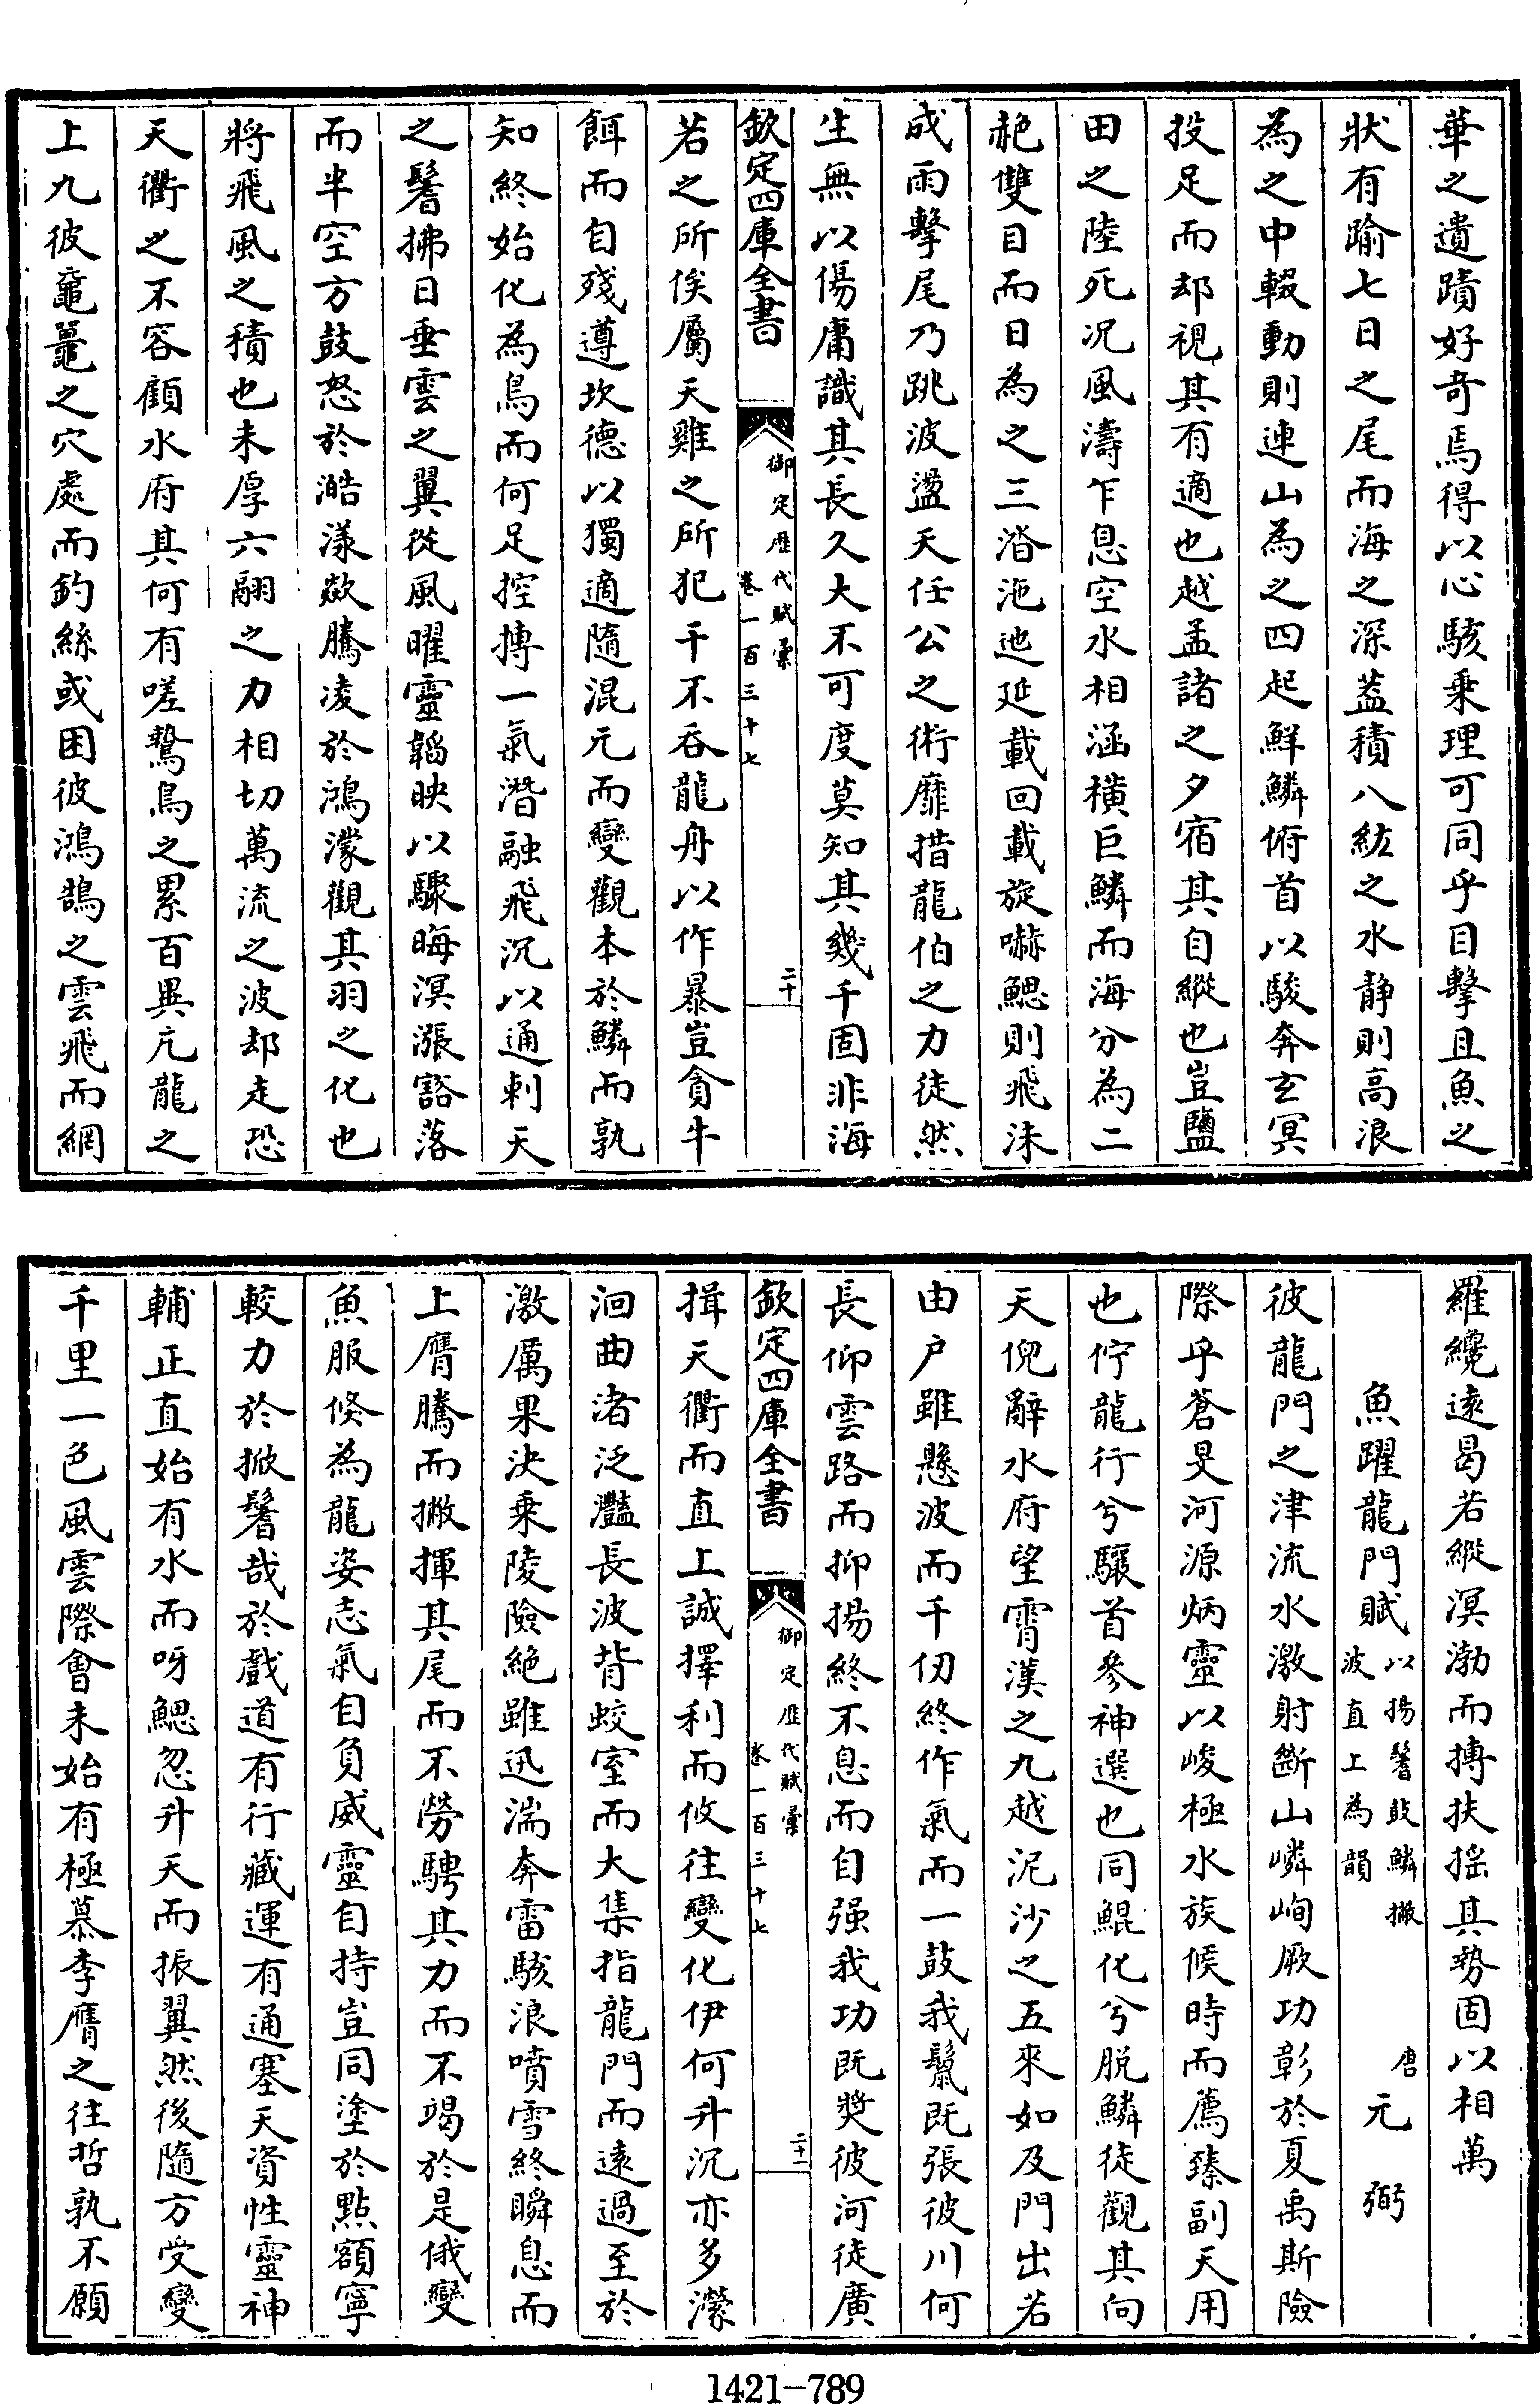 華之遺蹟好奇焉得以心駭乗理可同乎目擊且魚之
狀有踰七日之尾而海之深葢積八紘之水静則高浪
為之中輟動則連山為之四起鮮鱗俯首以駿奔玄冥
投足而却視其有適也越孟諸之夕宿其自縱也豈鹽
田之陸死况風濤乍息空水相涵横巨鱗而海分為二
赩雙目而日為之三㳫沲迆延載回載旋嚇鰓則飛沫
成雨擊尾乃跳波盪天任公之術靡措龍伯之力徒然
生無以傷庸識其長久大不可度莫知其幾千固非海
欽定四庫全書
御定歴代賦彚
卷一百三十七
二十
若之所俟屬天雞之所犯干不吞龍舟以作暴豈貪牛
餌而自殘遵坎德以獨適隨混元而變觀本於鱗而孰
知終始化為鳥而何足控搏一氣潛融飛沉以通刺天
之鬐拂日垂雲之翼從風曜靈韜映以驟晦溟漲豁落
而半空方鼓怒於澔漾欻騰凌於鴻濛觀其羽之化也
將飛風之積也未厚六翮之力相切萬流之波却走恐
天衢之不容顧水府其何有嗟鷙鳥之累百異亢龍之
上九彼黿鼉之穴處而釣絲或困彼鴻鵠之雲飛而網
羅纔逺曷若縱溟渤而搏扶揺其勢固以相萬
魚躍龍門賦
以揚鬐鼓鱗撇
波直上為韻
唐
元弼
彼龍門之津流水激射斷山嶙峋厥功彰於夏禹斯險
際乎蒼旻河源炳靈以峻極水族候時而薦臻副天用
也佇龍行兮驤首參神選也同鯤化兮脱鱗徒觀其向
天倪辭水府望霄漢之九越泥沙之五來如及門出若
由户雖懸波而千仞終作氣而一鼓我鬛既張彼川何
長仰雲路而抑揚終不息而自强我功既奬彼河徒廣
欽定四庫全書
御定歴代賦彚
卷一百三十七
二十一
揖天衢而直上誠擇利而攸往變化伊何升沉亦多濴
洄曲渚泛灩長波背蛟室而大集指龍門而逺過至於
激厲果決乗陵險絶雖迅湍奔雷駭浪噴雪終瞬息而
上膺騰而撇揮其尾而不勞騁其力而不竭於是俄變
魚服倐為龍姿志氣自負威靈自持豈同塗於㸃額寧
較力於掀鬐哉於戲道有行藏運有通塞天資性靈神
輔正直始有水而呀鰓忽升天而振翼然後隨方受變
千里一色風雲際會未始有極慕李膺之往哲孰不願
1421-789